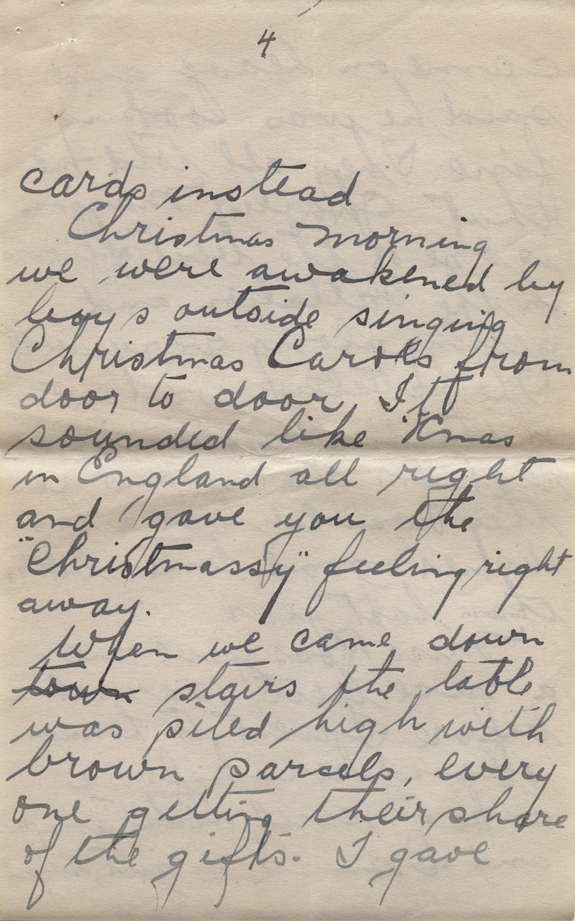 4
cards instead
Christmas morning
we were awakened by
boys outside singing
Christmas Carols from
door to door. It
sounded like Xmas
in England all right
and gave you the
"Christmassy" feeling right
away.
When we came down
town stairs the table
was piled high with
brown parcels, every
one getting their share
of the gifts. I gave